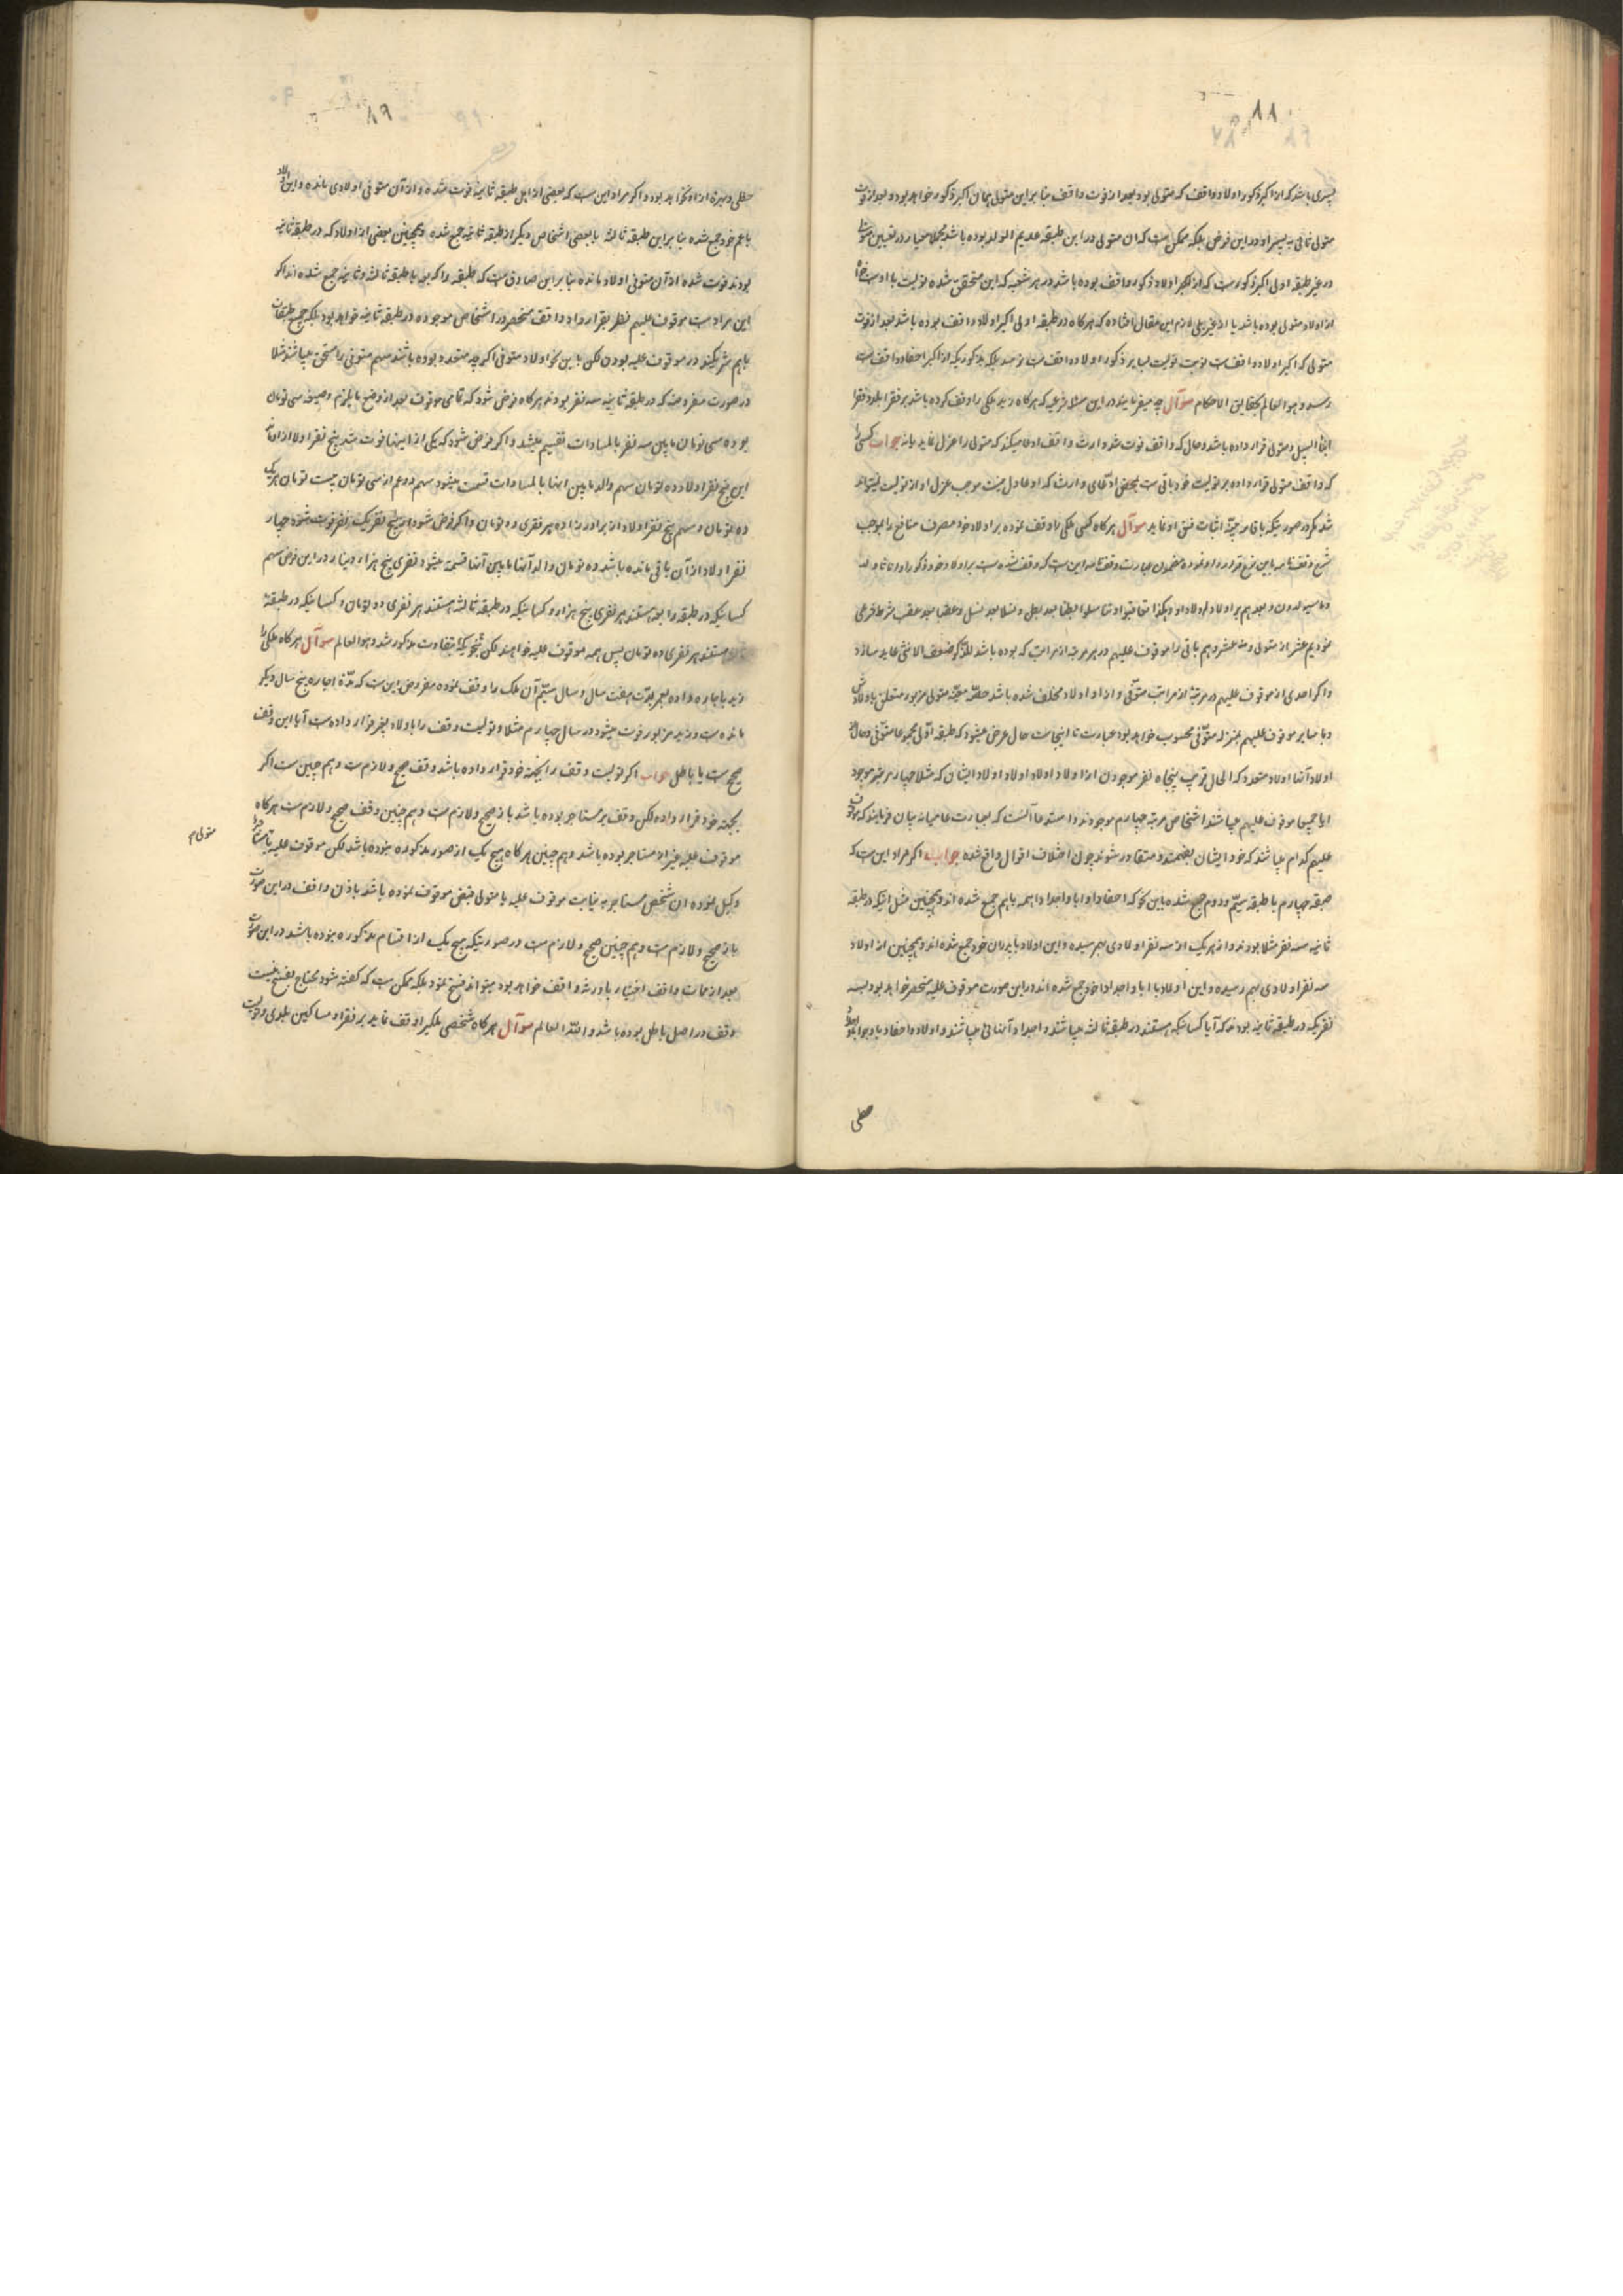 ۸۸
پسری باشد که از اکبر ذکور اولاد واقف که متولی بود بعد از فوت واقف بنا بر این متولی همان اکبر ذکور خواهد بود و بعد از فوت
متولی ثانی به پسر او در این فرض بلکه ممکن است که ان متولی در این طبقه عدیم الولد بوده باشد مجملا معیار در تعیین متولی
در غیر طبقه اولی اکبر ذکور است که از اکبر اولاد ذکور واقف بوده باشد در هر شعبه که این متحقق شده تولیت با اوست خواه
از اولاد متولی بوده باشد یا از غیر بلی لازم این مقال افتاده که هرگاه در طبقه اولی اکبر اولاد واقف بوده باشد بعد از فوت
متولی که اکبر اولاد واقف است نوبت تولیت بسایر ذکور اولاد واقف نرسد بلکه بذکوریکه از اکبر احفاد واقف است
رسد و هو العالم بحقایق الاحکام سوآل چه میفرمایند در این مسئلهٔ شرعیه که هرگاه زید ملکی را وقف کرده باشد بر فقراء بلد و فقرا
ابناء السبیل و متولی قرار داده باشد و حال که واقف فوت شد وارث واقف ادعا میکند که متولی را عزل نماید یا نه جواب کسی را
که واقف متولی قرار داده بر تولیت خود باقی است بمحض ادّعای وارث که او عادل نیست موجب عزل او از تولیت نمیتواند
شد مگر در صورتیکه باقامه بیّنه اثبات فسق او نماید سوآل هرگاه کسی ملکی را وقف نموده بر اولاد خود مصرف منافع را بموجب
شرح وقفنامه باین نهج قرارداد نموده مضمون عبارت وقفنامه این است که وقف شده است بر اولاد خود ذکورا و اناثا و لد
و ما سیولدون و بعدهم بر اولاد اولاد او و هکذا ما تعاقبوا و تناسلوا بطنا بعد بطن و نسلا بعد نسل و عقبا بعد عقب بشرط فرعی
نمودیم عشر از متولی و نه عشر وهم باقی را موقوف علیهم در هر مرتبه از مراتب که بوده باشد للذکر ضعف الانثی عاید سازد
واگر احدی از موقوف علیهم در مرتبهٔ از مراتب متوفّی و از او اولاد مخلف شده باشد حصّهٔ معیّنه متولی مزبور متعلق باولادش
وبا سایر موقوف علیهم بمنزله متوّفی محسوب خواهد بود عبارت تا اینجاست حال عرض میشود که طبقه اوّلی مجموعا متوّفی و حال از
اولاد آنها اولاد متعدد که الحال قریب پنجاه نفر موجودن از اولاد اولاد اولاد و اولاد اولاد ایشان که مثلا چهار مرتبه موجود
ایا جمیعا موقوف علیهم میباشند اشخاص مرتبه چهارم موجودند و استدعا آنست که بعبارت عامیانه بیان فرمایند که موقوف
علیهم کدام میباشند که خود ایشان بفهمند و متقاعد شوند چون اختلاف اقوال واقع شده جواب اگر مراد این است که
طبقه چهارم با طبقه سیّم و دوم جمع شده باین نحو که احفاد او ابا و اجداد همه باهم جمع شده اند و همچنین مثل اینکه در طبقه
ثانیه سه نفر مثلا بودند و از هر یک از سه نفر اولادی بهم رسیده و این اولاد با پدران خود جمع شده اند و همچنین از اولاد
سه نفر اولادی بهم رسیده و این اولاد با ابا و اجداد خود جمع شده اند در این صورت موقوف علیه منحصر خواهد بود بسه
نفریکه در طبقه ثانیه بودند که آبا کسانیکه هستند در طبقه ثالثه میباشند و اجداد آنهائی میباشند و اولاد و احفاد با وجود ابا
حظی
۸۹
حظی و بهرهٔ از او نخواهد بود و اگر مراد این است که بعضی از اهل طبقه ثانیه فوت شده و از آن متوفی اولادی مانده و این اولاد
با عم خود جمع شده بنا بر این طبقه ثالثه با بعضی اشخاص دیگر از طبقه ثانیه جمع شده و همچنین بعضی از اولاد که در طبقه ثانیه
بودند فوت شده از آن متوفی اولاد مانده بنا بر این صادق است که طبقه رابعه با طبقه ثالثه و ثانیه جمع شده اند اگر
این مراد است موقوف علیهم نظر بقرارداد واقف منحصر در اشخاص موجوده در طبقه ثانیه نخواهد بود بلکه جمیع طبقات
باهم شریکند در موقوف علیه بودن لکن باین نحو اولاد متوفی اگرچه متعدد بوده باشند سهم متوفی را مستحق میباشند مثلا
در صورت مفروضه که در طبقه ثانیه سه نفر بودند هرگاه فرض شود که نمای موقوف بعد از وضع مایلزم وضعه سی تومان
بوده سی تومان مابین سه نفر بالمساوات تقسیم میشد و اگر فرض شود که یکی از اینها فوت شد پنج نفر اولاد از او ماند
این پنج نفر اولاد ده تومان سهم والد مابین اینها بالمساوات قسمت میشود سهم دو عم از سی تومان بیست تومان هر یک
ده تومان و سهم پنج نفر اولاد از برادرزاده هر نفری دو تومان و اگر فرض شود از پنج نفر یک نفر فوت شود چهار
نفر اولاد از آن باقی مانده باشد دو تومان والد آنها مابین آنها قسمت میشود نفری پنج هزار دینار در این فرض سهم
کسانیکه در طبقه رابعه هستند هر نفری پنج هزار و کسانیکه در طبقه ثالثه هستند هر نفری دو تومان و کسانیکه در طبقهٔ
ثانیه هستند هر نفری ده تومان پس همه موقوف علیه خواهند لکن بنحویکه متفاوت مذکور شد و هو العالم سوآل هرگاه ملکی را
زید باجاره داده بعمر بمدّت هفت سال و سال سیّم آن ملک را وقف نموده مفروض این است که مدّة اجاره پنج سال دیگر
مانده است و زید مزبور فوت میشود در سال چهارم مثلا و تولیت وقف را باولاد بغیر قرار داده است آیا این وقف
صحیح است یا باطل جواب اگر تولیت وقف را بجهة خود قرار داده باشد وقف صحیح و لازم است و هم چنین است اگر
بجهة خود قرار داده لکن وقف بر مستاجر بوده باشد باز صحیح و لازم است و هم چنین وقف صحیح و لازم است هرگاه
موقوف علیه غیر از مستاجر بوده باشد و هم چنین هرگاه هیچ یک از صور مذکوره نبوده باشد لکن موقوف علیه یا مستاجر را
متولی م
وکیل نموده ان شخص مستاجر به نیابت موقوف علیه یا متولی قبض موقوف نموده باشد باذن واقف در این صورت
باز صحیح و لازم است و هم چنین صحیح و لازم است در صورتیکه هیچ یک از اقسام مذکوره نبوده باشد در این صورت
بعد از ممات واقف اختیار با ورثه واقف خواهد بود میتواند فسخ نمود بلکه ممکن است که گفته شود محتاج بفسخ نیست
وقف در اصل باطل بوده باشد و اللّه العالم سوآل هرگاه شخصی ملکیرا وقف نماید بر فقراء و مساکین بلدی و تولیت